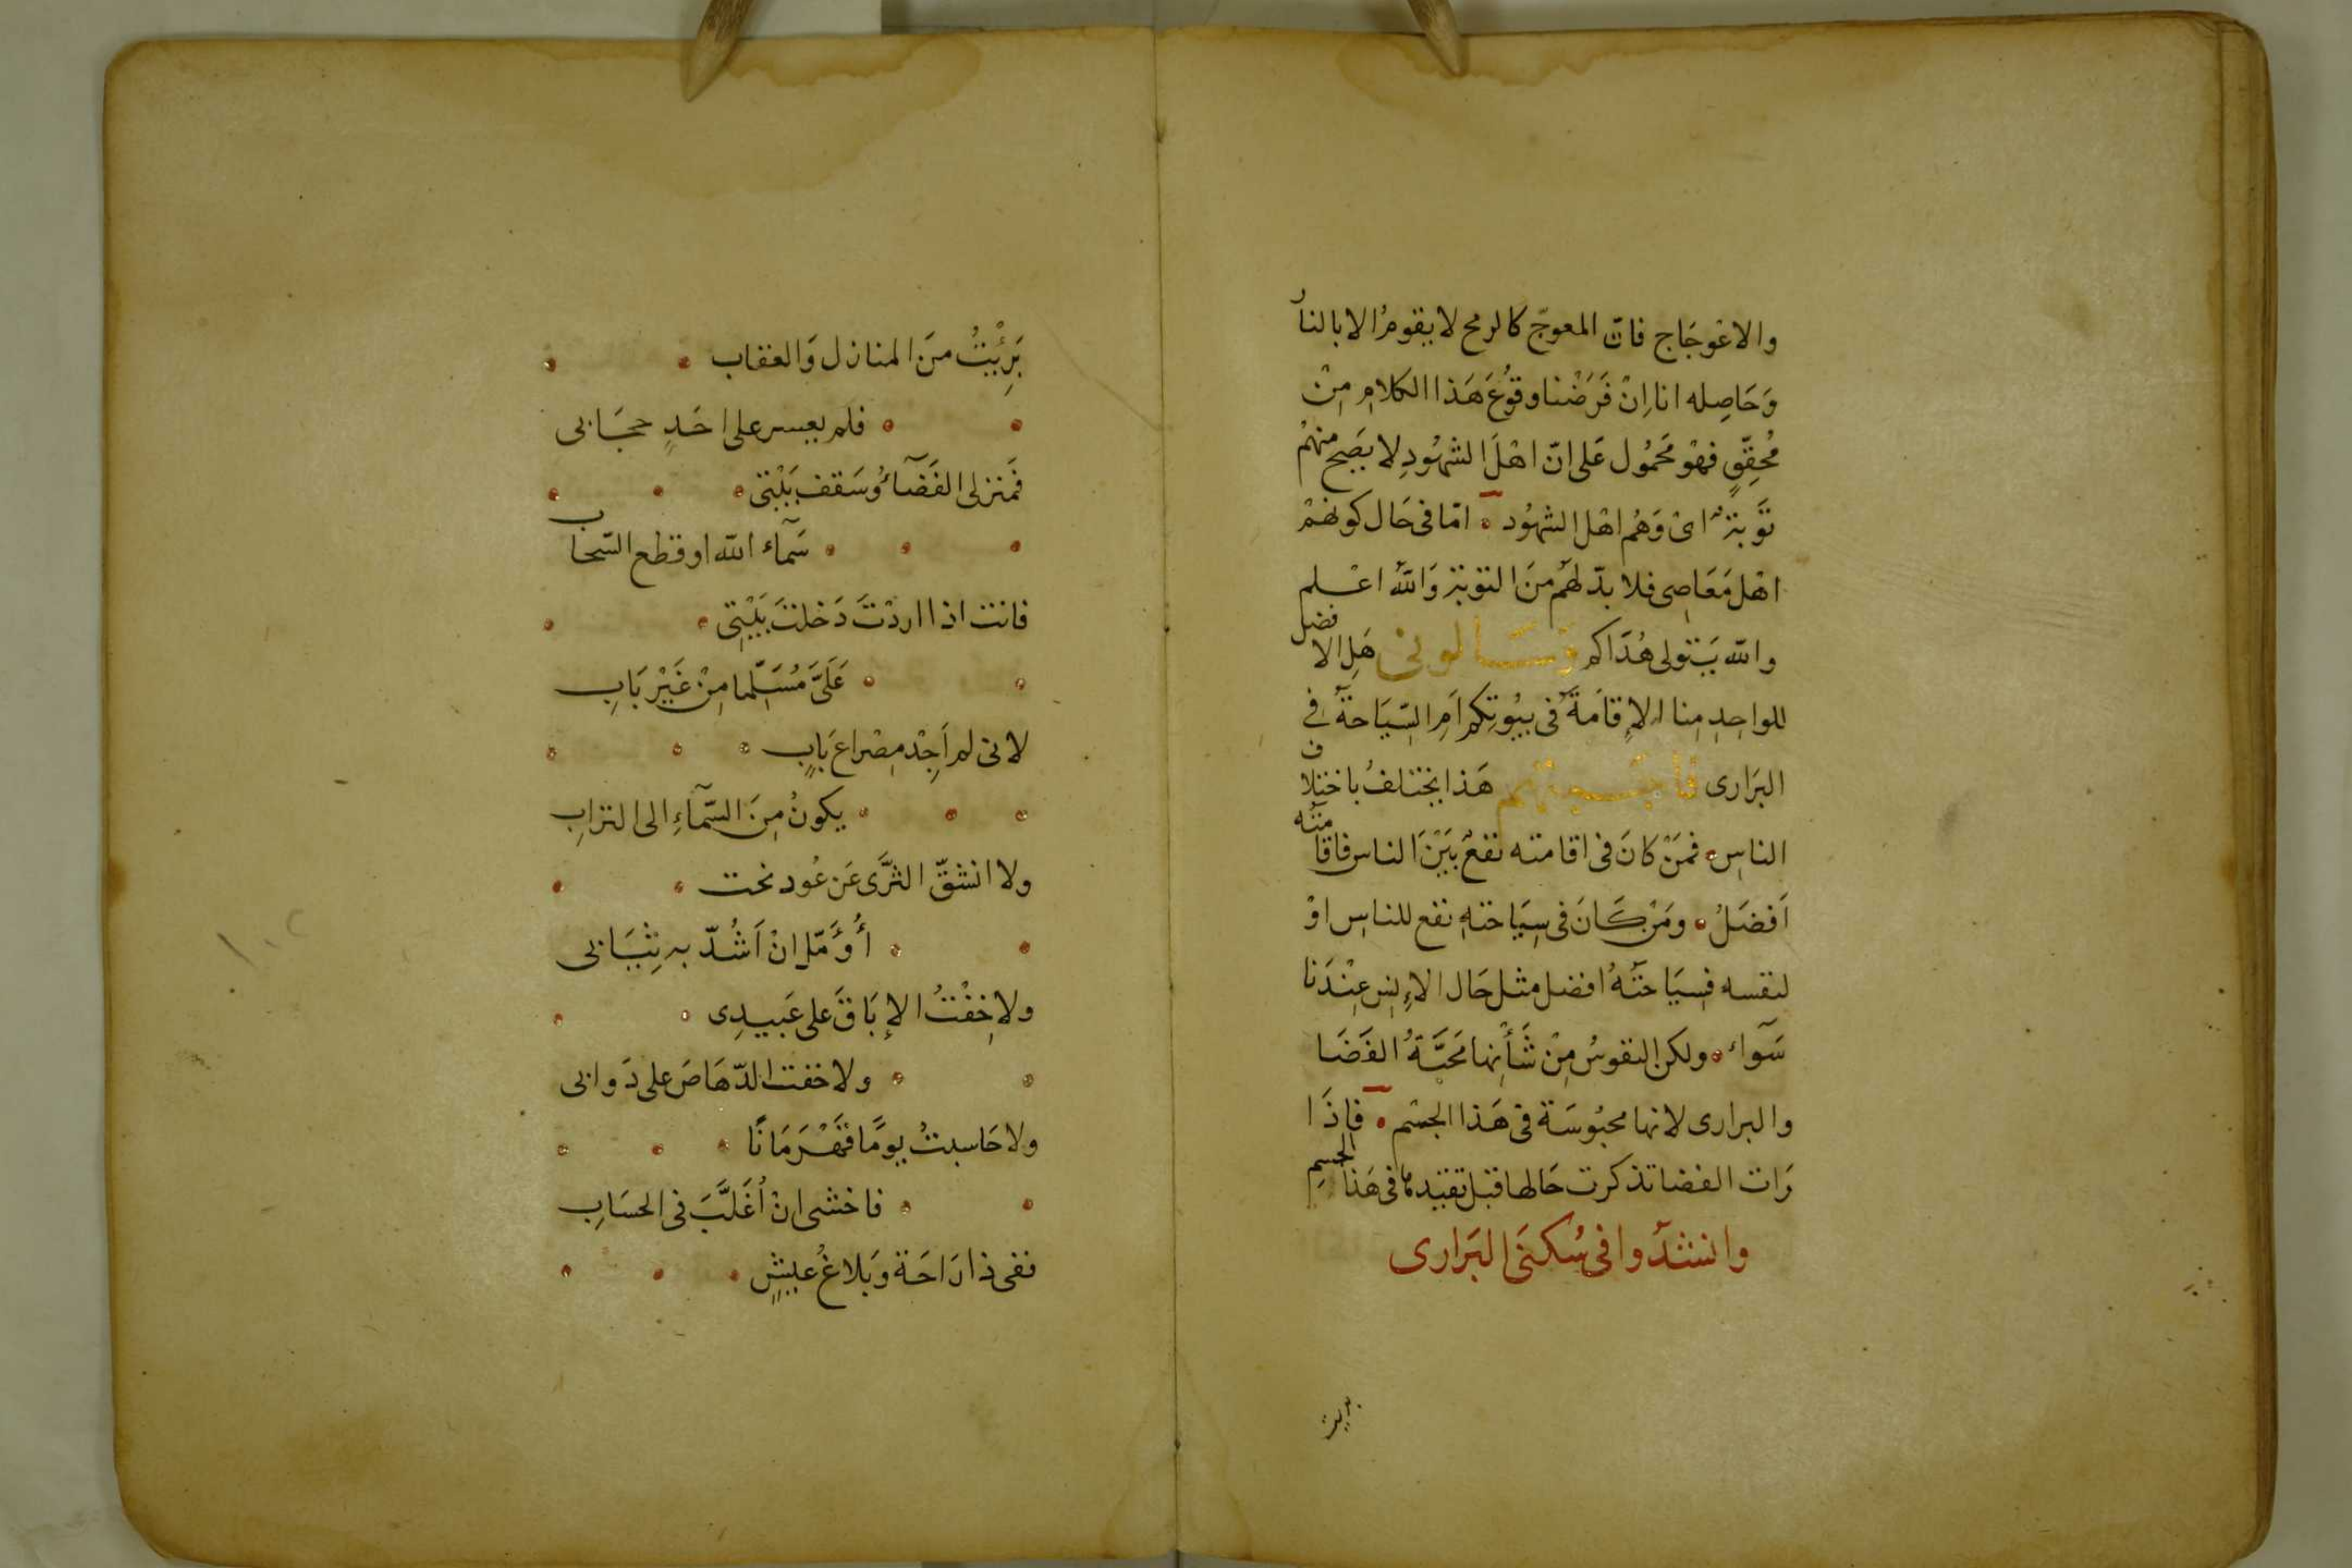 والاعْوجَاج فانّ المعوجّ كالرمح لا يقومُ الا بالنار
وَحَاصِله انا اِنْ فَرَضْنا وقوُعَ هَذا الكلامِ مِنْ
مُحقِّقٍ فهْو مَحمُول عَلى انّ اهْلَ الشهُودِ لا يصَح منهمْ
تَوَبة اىْ وَهُم اهْل الشهُود امّا فى حَال كونهمْ
اهْل مَعَاصِى فلا بدّ لهَم منَ التوبة وَاللهُ اعْلم
والله يَتولى هُدَاكم وَسَالونى هَلِ الافضل
للواحِدِ مِنا الاِقامَة فى بيُوتكم اَمِ السّيَاحة فى
البرَارى فاجبتهم هَذا يختلفُ باختلاف
الناسِ فمَنْ كانَ فى اقامته نفعٌ بَيْنَ الناس فاقامته
اَفضَلُ ومَنْ كَانَ فى سِيَاحتهِ نفع للناسِ اوْ
لنفسه فسِيَاحتُهُ افضل مثل حَال الاِنسِ عِنْدَنا
سَوآء ولكن النفوسُ مِنْ شَأنِها مَحَبَّةُ الفَضَا
والبرارى لانها محبُوسَة فى هَذا الجسْمِ فاِذَا
رَات الفضا تذكرت حَالها قبل تقيّدها فى هَذا الجسمِ
وانشدَوا فى سُكنَى البَرارى
بريت
بَرِئْيتُ منَ المنازل وَالعقاب
فلم يعسر على احَدٍ حجَابى
فَمنزلى الفَضَآءُ وُسَقف بَيْتى
سَمآء الله او قطع السّحاب
فانت اذا اردْتَ دَخلتَ بَيْتِى
عَلَىَّ مُسَلِّما مِنْ غَيْرِ بَابِ
لانى لم اَجِدْ مِصْراعَ بَابٍ
يكونُ مِنَ السَّمآءِ الى الترابِ
ولا انشقّ الثرَّى عَن عُود تحت
أُوَمّل انْ اَشُدّ به ثِيَابى
ولا خِفْتُ الاِبَاقَ على عَبيدِى
ولا خفت الدّهَاصَ على دَوابى
ولا حَاسبتُ يومًا قَهْرَمَانًا
فاخشى انْ اُغَلَّبَ فى الحسَابِ
ففى ذا رَاحَة وَبَلاغُ عيشٍ